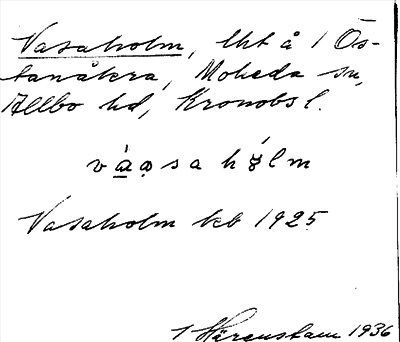 Vasaholm, lht å 1 Ös-
tanåkra, Moheda sn,
Allbo hd, Kronobs l.
v à̲a̤ s a h ó̤ l m
Vasaholm kb 1925
1 Härenstam 1936